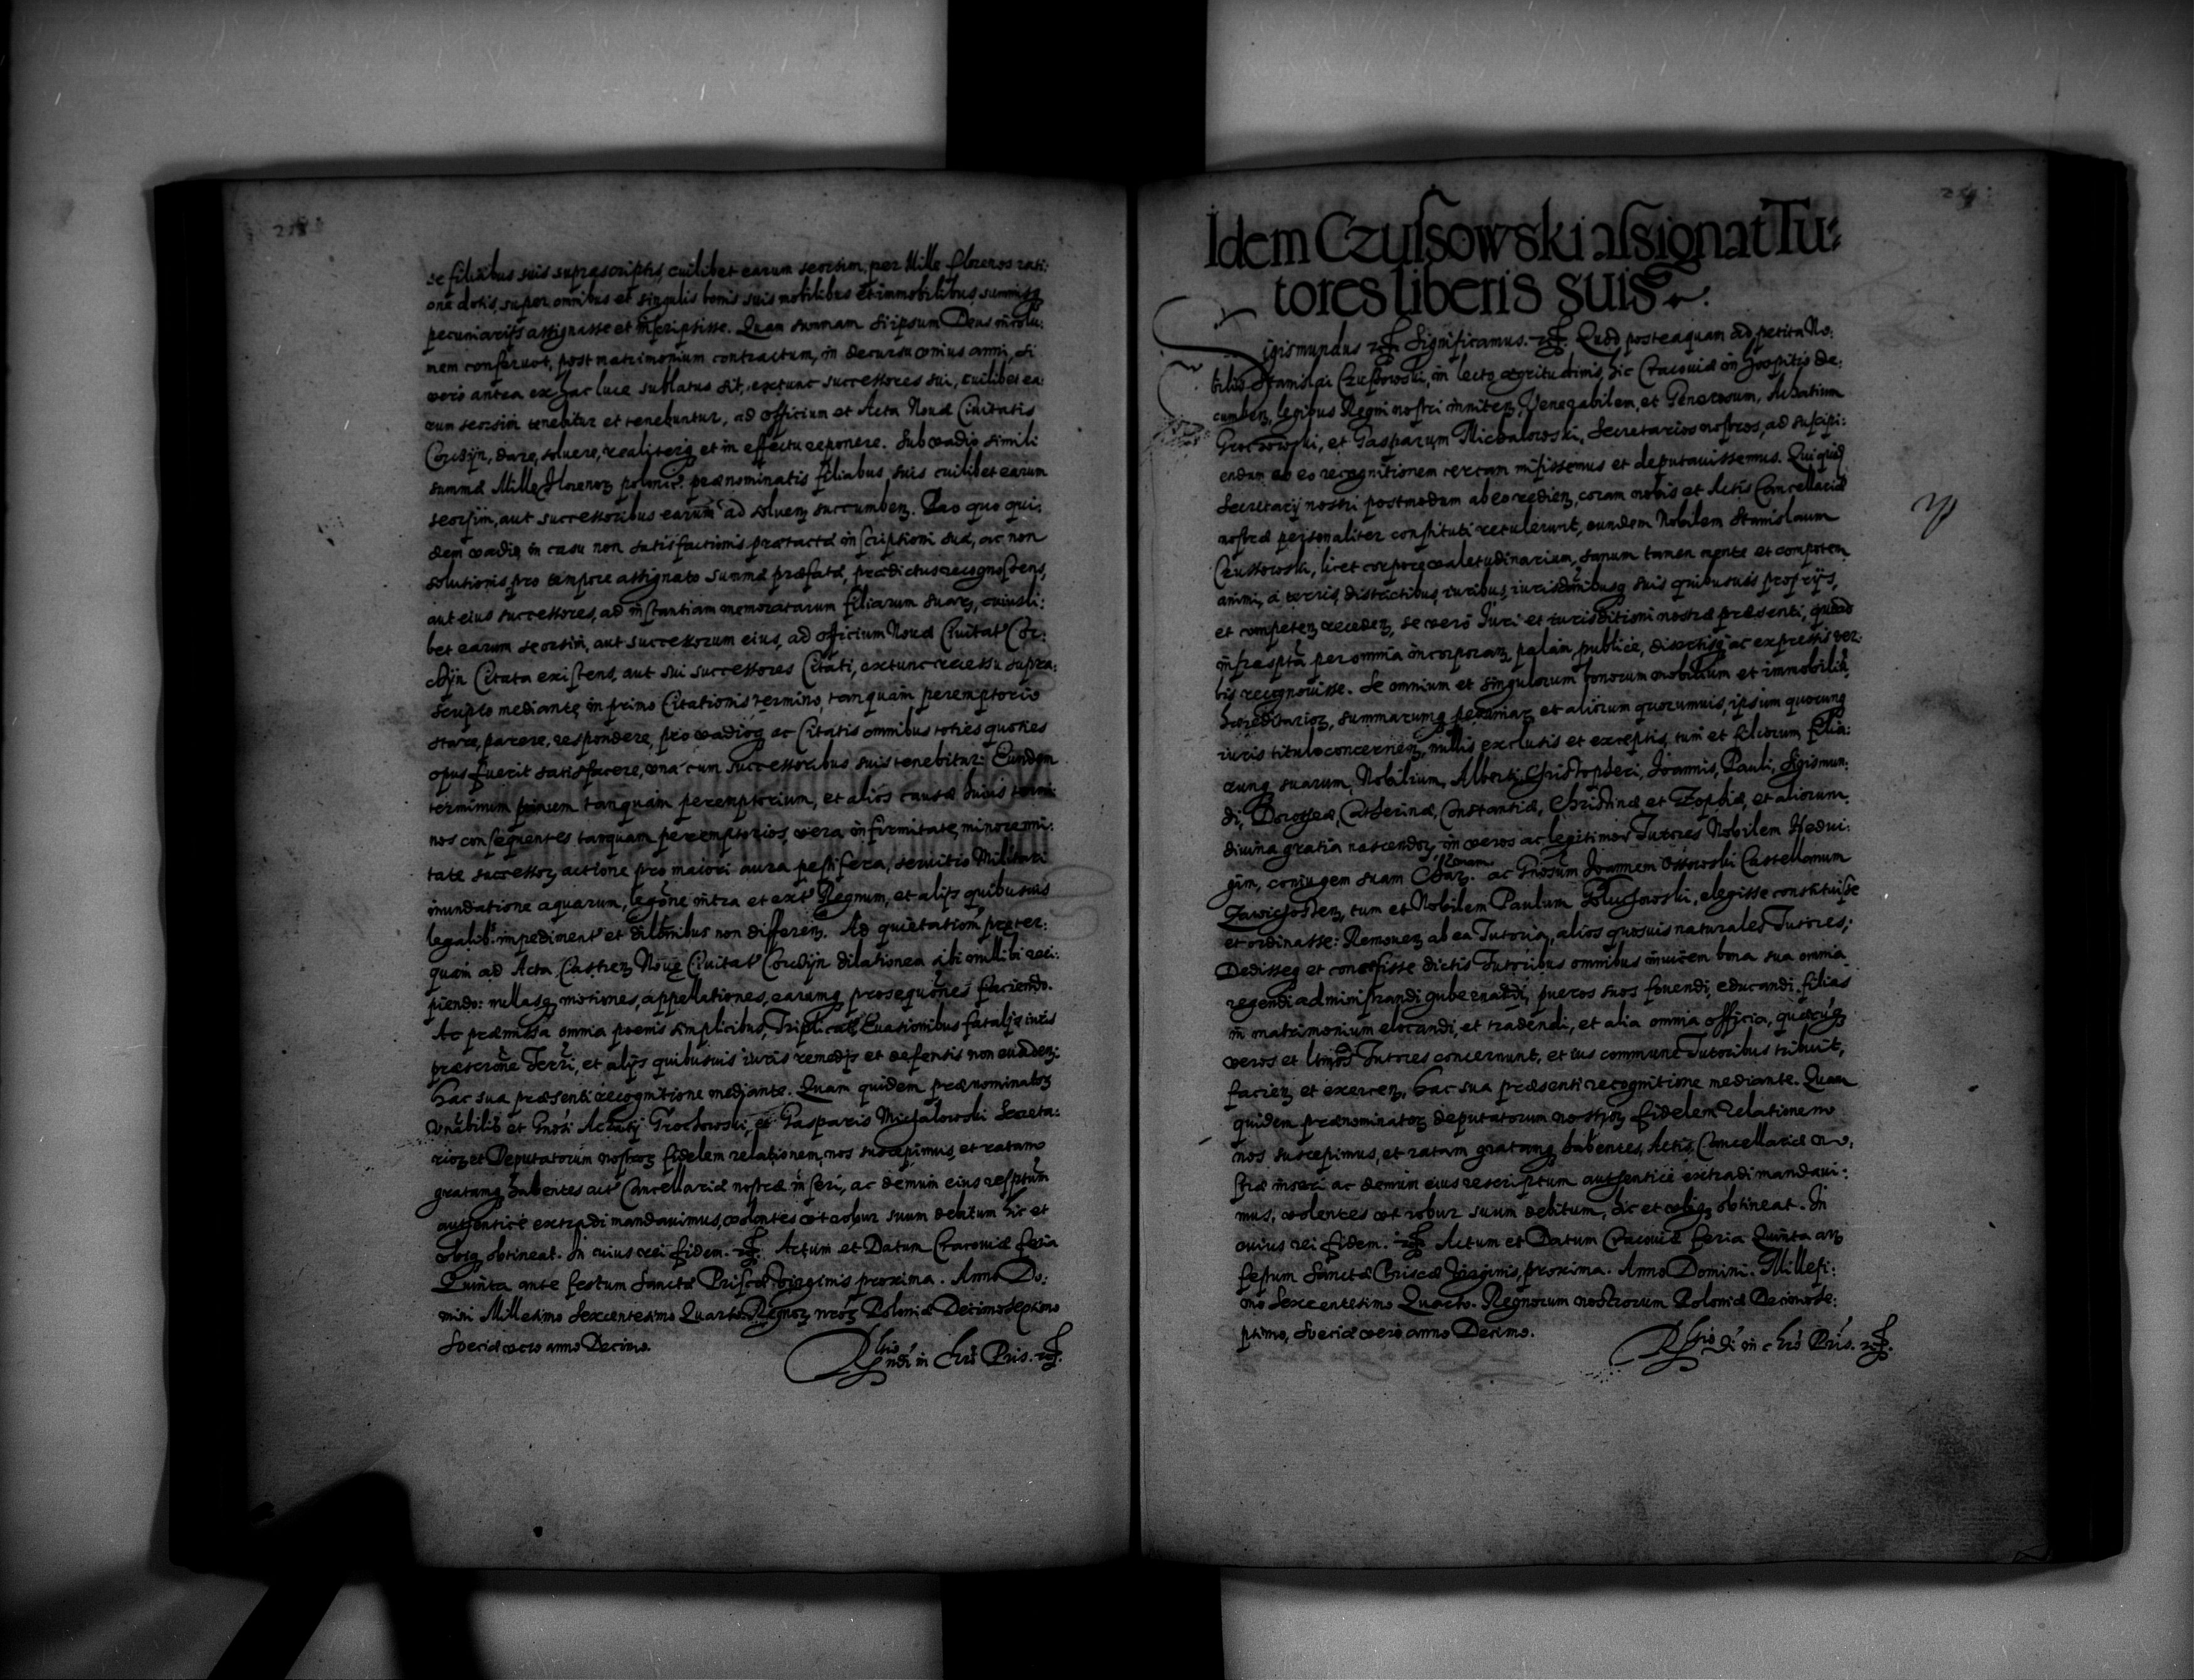 se filiabus suis suprascriptis, cuilibet earum seorsim, per Mille florenos rati:
one dotis, super omnibus et singulis bonis suis mobilibus et immobilibus, summisq
pecuniarijs assignasse et inscripsisse. Quam summam si ipsum Deus incolu:
mem conseruet, post matrimonium contractum, in decursu vnius anni, si
vero antea ex hac luce sublatus sit, extunc successores sui, cuilibet ea:
rum seorsim tenebitur et tenebuntur, ad officium et Acta Nouæ Ciuitatis
Corczyn, dare, soluere, realiterq et in effectu reponere. Sub vadio simili
summæ Mille Florenoz polonic. prænominatis filiabus suis cuilibet earum
seorsim, aut successoribus earum ad soluen succumben. Pro quo qui:
dem vadio in casu non satisfactionis prætactæ inscriptioni suæ, ac non
solutionis pro tempore assignato summæ præfatæ, prædictus recognoscens,
aut eius successores, ad instantiam memoratarum filiarum suarz, cuiusli:
bet earum seorsim, aut successorum eius, ad officium Nouæ Ciuitat Cor:
czyn Citata existens, aut sui successores Citati, extunc recessu supra:
scripto mediante, in primo Citationis termino, tanquam peremptorio
stare, parere, respondere, pro vadioq ac Citatis omnibus toties quoties
opus fuerit satisfacere, vna cum successoribus suis tenebitur: Eundem
terminum primum tanquam peremptorium, et alios causæ huius termi:
nos consequentes tanquam peremptorios, vera infirmitate, minorenni:
tate successoz actione pro maiori aura pestifera, seruitio Militari
inundatione aquarum, legone intra et ext Regnum, et alijs quibusuis
legalib impediment et dilonibus non differen. Ad quietationem præter:
quam ad Acta Castren Nouæ Ciuitat Corczyn dilationem sibi nullibi reci:
piendo: nullasq motiones, appellationes, earumq prosequones faciendo.
Ac præmissa omnia poenis simplicibus, Triplicat Euasionibus fatalib iuris
præscrone Terri, et alijs quibusuis iuris remedijs et defensis non euaden:
hac sua præsenti recognitione mediante. Quam quidem prænominatoz
Vnabilis et Gnosi Achatij Grochowski, et Gasparis Michalowski Secreta:
rioz et Deputatorum nostroz fidelem relationem, nos suscepimus, et ratam
gratamq habentes act Cancellariæ nostræ inseri, ac demum eius rescptum
authentice extradi mandauimus, volentes vt robur suum debitum hic et
vbiq obtineat. In cuius rei fidem. etc. Actum et Datum Cracouiæ feria
Quinta ante festum Sanctæ Priscæ Virginis proxima. Anno Do:
mini Millesimo Sexcentesimo Quarto. Regnoz nroz Poloniæ Decimo septimo
Sueciæ vero anno Decimo.
Idem Czussowski assignat Tu:
tores liberis suis.
Sigismundus etc. Significamus. etc. Quod posteaquam ad petita No:
bilis Stanislai Czussowski, in lecto ægritudinis, hic Cracouiæ in hospitio de:
cumben, legibus Regni nostri inniten, Venerabilem, et Generosum, Achatium
Grochowski, et Gasparum Michalowski, Secretarios nostros, ad suscipi:
endam ab eo recognitionem certam misissemus et deputauissemus. Qui quidem
Secretarij nostri postmodum ab eo redien, coram nobis et Actis Cancellariæ
nostræ personaliter constituti retulerunt, eundem Nobilem Stanislaum
Czussowski, licet corpore valetudinarium, sanum tamen mente et compotem
animi, a terris, districtibus, iuribus, iurisdonibusq suis quibusuis proprijs,
et competen receden, se vero Iuri et iurisditioni nostræ præsenti, quoad
infrasptam per omnia incorporan, palam, publice, disertisq ac expressis ver:
bis recognouisse. Se omnium et singulorum bonorum mobilium et immobiliū
hæreditarioz, summarumq pecuniar et aliorum quorumuis, ipsum quocunq
iuris titulo concernen, nullis exclusis et exceptis, tum et filiorum filia:
rumq suarum, Nobilium, Alberti, Christopheri, Ioannis, Pauli, Sigismun:
di, Dorotheæ, Catherinæ, Constantiæ, Christinæ et Zophiæ, et aliorum
diuina gratia nascendoz, in veros ac legitimos Tutores Nobilem Hedui:
gim, coniugem suam Char. ac Gnosum Ioannem Ossowski Castellanum
Zawichosten, tum et Nobilem Paulum Głuchowski, elegisse constituisse
et ordinasse: Remouen ab ea Tutoria, alios quosuis naturales Tutores;
Dedisseq et concessisse dictis Tutoribus omnibus inuicem bona sua omnia
regendi administrandi gubernandi, pueros suos fouendi, educandi, filias
in matrimonium elocandi, et tradendi, et alia omnia officia, quæcunq
veros et ltimos Tutores concernunt, et ius commune Tutoribus tribuit,
facien et exercen, hac sua præsenti recognitione mediante. Quam
quidem prænominatoz deputatorum nostroz fidelem relationem
nos suscepimus, et ratam gratamq habentes, Actis Cancellariæ no:
stræ inseri ac demum eius rescriptum authentice extradi mandaui:
mus, volentes vt robur suum debitum, hic et vbiq obtineat. In
cuius rei fidem. etc. Actum et Datum Cracouiæ feria Quinta an
festum Sanctæ Priscæ Virginis, proxima. Anno Domini. Millesi:
mo Sexcentesimo Quarto. Regnorum nostrorum Poloniæ Decimo se:
ptimo, Sueciæ vero anno Decimo.